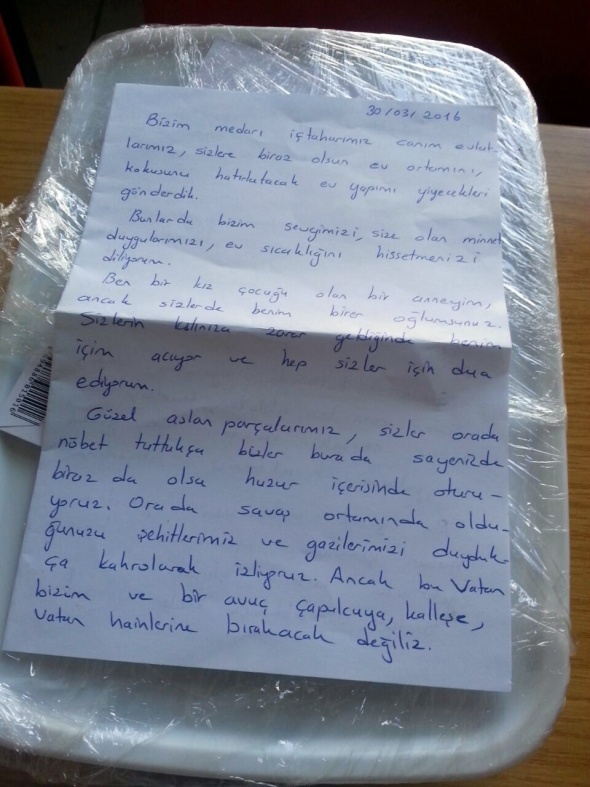 30/03/2016
Bizim medarı iştaharımız canım evlat-
larımız, sizlere biraz olsun ev ortamını,
kokusunu hatırlatacak ev yapımı yiyecekleri
gönderdik.
Bunlarda bizim sevgimizi, size olan minnet
duygularımızı, ev sıcaklığını hissetmenizi
diliyorum.
Ben bir kız çocuğu olan bir anneyim,
ancak sizlerde benim birer oğlumsunuz.
Sizlerin kılınıza zarar geldiğinde benim
içim acıyor ve hep sizler için dua
ediyorum.
Güzel aslan parçalarımız, sizler orada
nöbet tuttukça bizler burada sayenizde
biraz da olsa huzur içerisinde oturu-
yoruz. Orada savaş ortamında oldu-
ğunuzu şehitlerimiz ve gazilerimizi duyduk-
ça kahrolarak izliyoruz. Ancak bu Vatan
bizim ve bir avuç çapulcuya, kalleşe,
vatan hainlerine bırakacak değiliz.